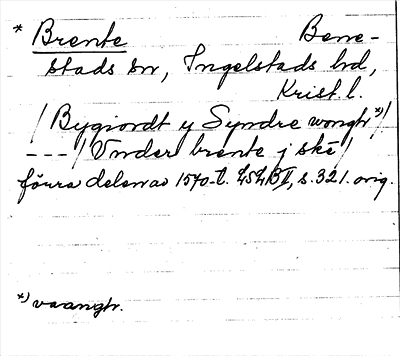 * Brente Bene-
stads sn, Ingelstads hd,
Krist. l.
/Bygiordt y Syndre wongh *)/
---/Vnder brente j ske/
förra delen av 1570-t. LSLBII, s. 321. orig.
*) vaangh.